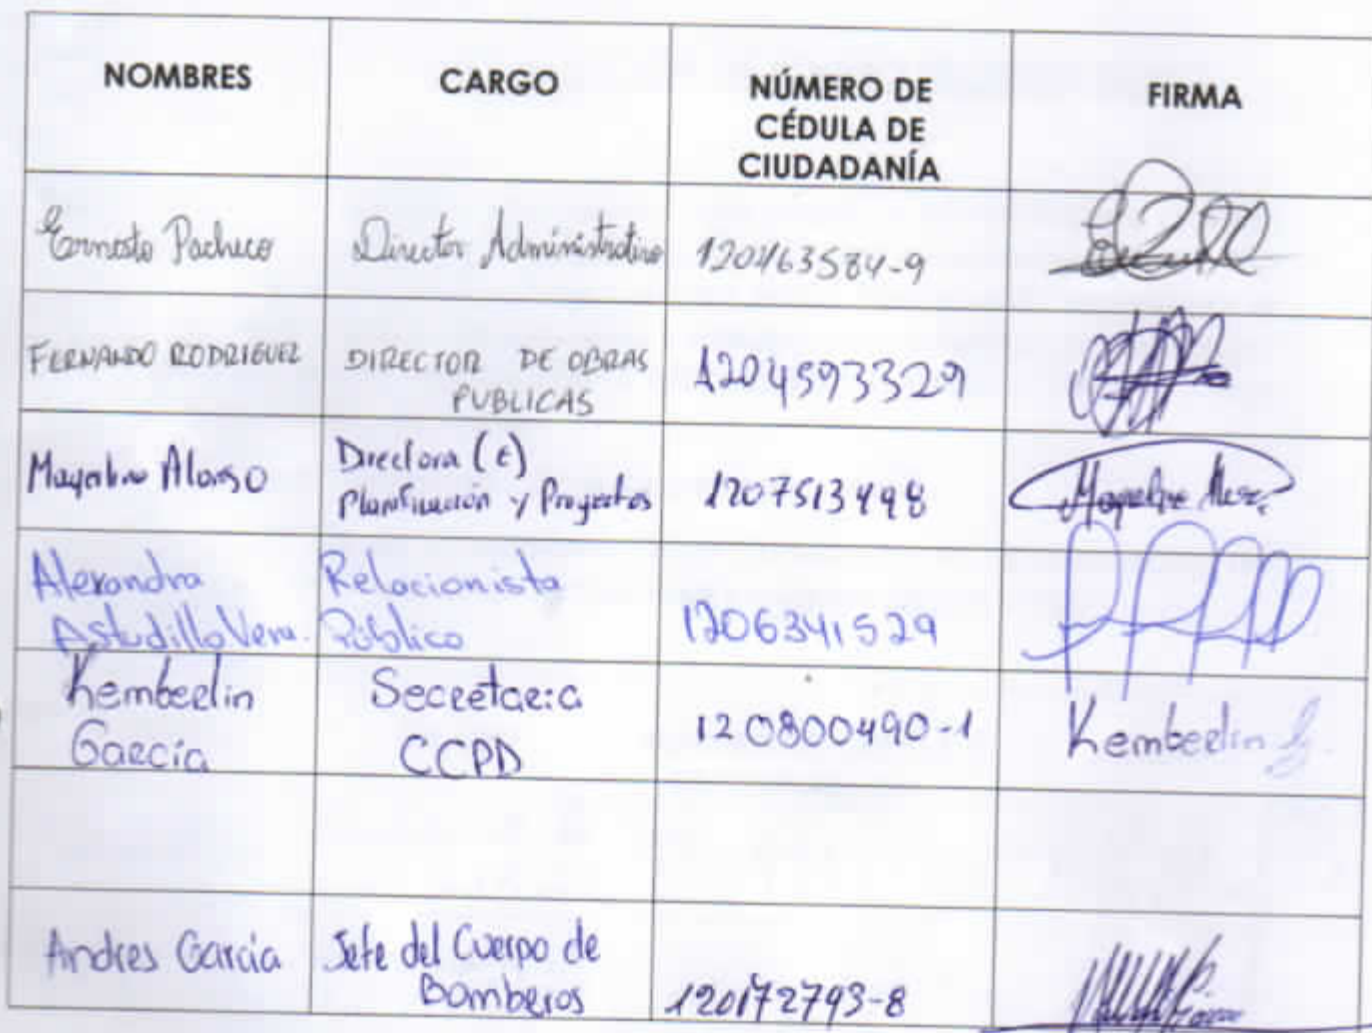 NOMBRES
CARGO
NÚMERO DE
CÉDULA DE
CIUDADANÍA
FIRMA
Ernesto Pacheco
Director Administrativo
120463584-9
FERNANDO RODRIGUEZ
DIRECTOR DE OBRAS
PUBLICAS
1204593329
Alonso
Directora (e)
Planificación y Proyectos
1207513498
Alexandra
Astudillo Vera.
Relacionista
Público
1206341529
Kemberlin
García
Secretaria
CCPD
120800490-1
Kemberlin G.
Andres García
Jefe del Cuerpo de
Bomberos
120172793-8